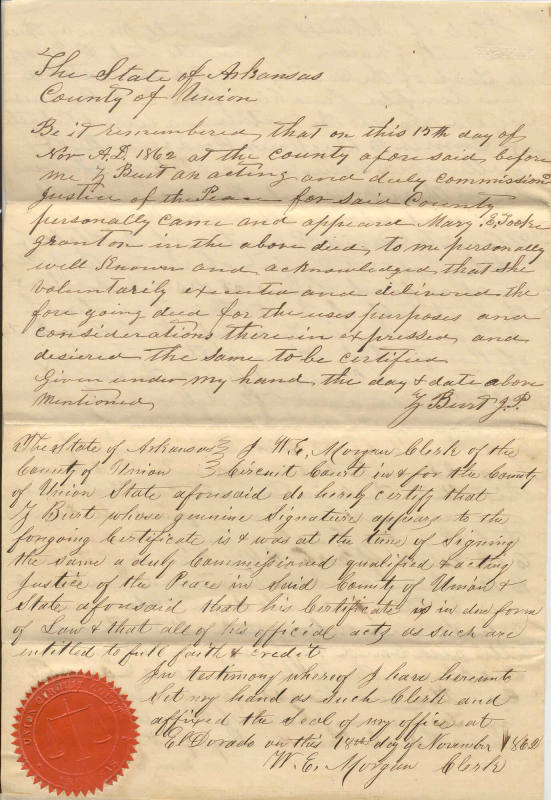 The State of Arkansas
County of Union
Be it remembered, that on this 15th day of
Nov A.D. 1862 at the county afore said, before
me Z Burt an acting and duly commissiond
Justice of the Peace for said County
personally came and appeared Mary. E,
grantor in the above died, to me personally
well Known and acknowledged that she
voluntarily executed and delivered the
fore going died for the uses purposes and
considerations therein expressed and
desiered the same to be certified
Given under my hand the day & date above
Mentioned, Z Burt J. P.
The State of Arkansas } I W. E. Morgan Clerk of the
County of Union } Circuit Court in & for the County
of Union State aforesaid do hereby certify that
Z Burt whose genuine Signature appears to the
forgoing Certificate is & was at the time of Signing
the same a duly Commissioned qualified & acting
Justice of the Peace in said County of Union &
State aforesaid that his Certificate is in due form
of Law & that all of his official acts as such are
entitled to full faith & credit
In testimony whereof I have hereunto
Set my hand as such Clerk and
affixed the Seal of my office at
El Dorado on this 18th day of November 1862
W. E. Morgan Clerk
UNION CIRCUIT COURT